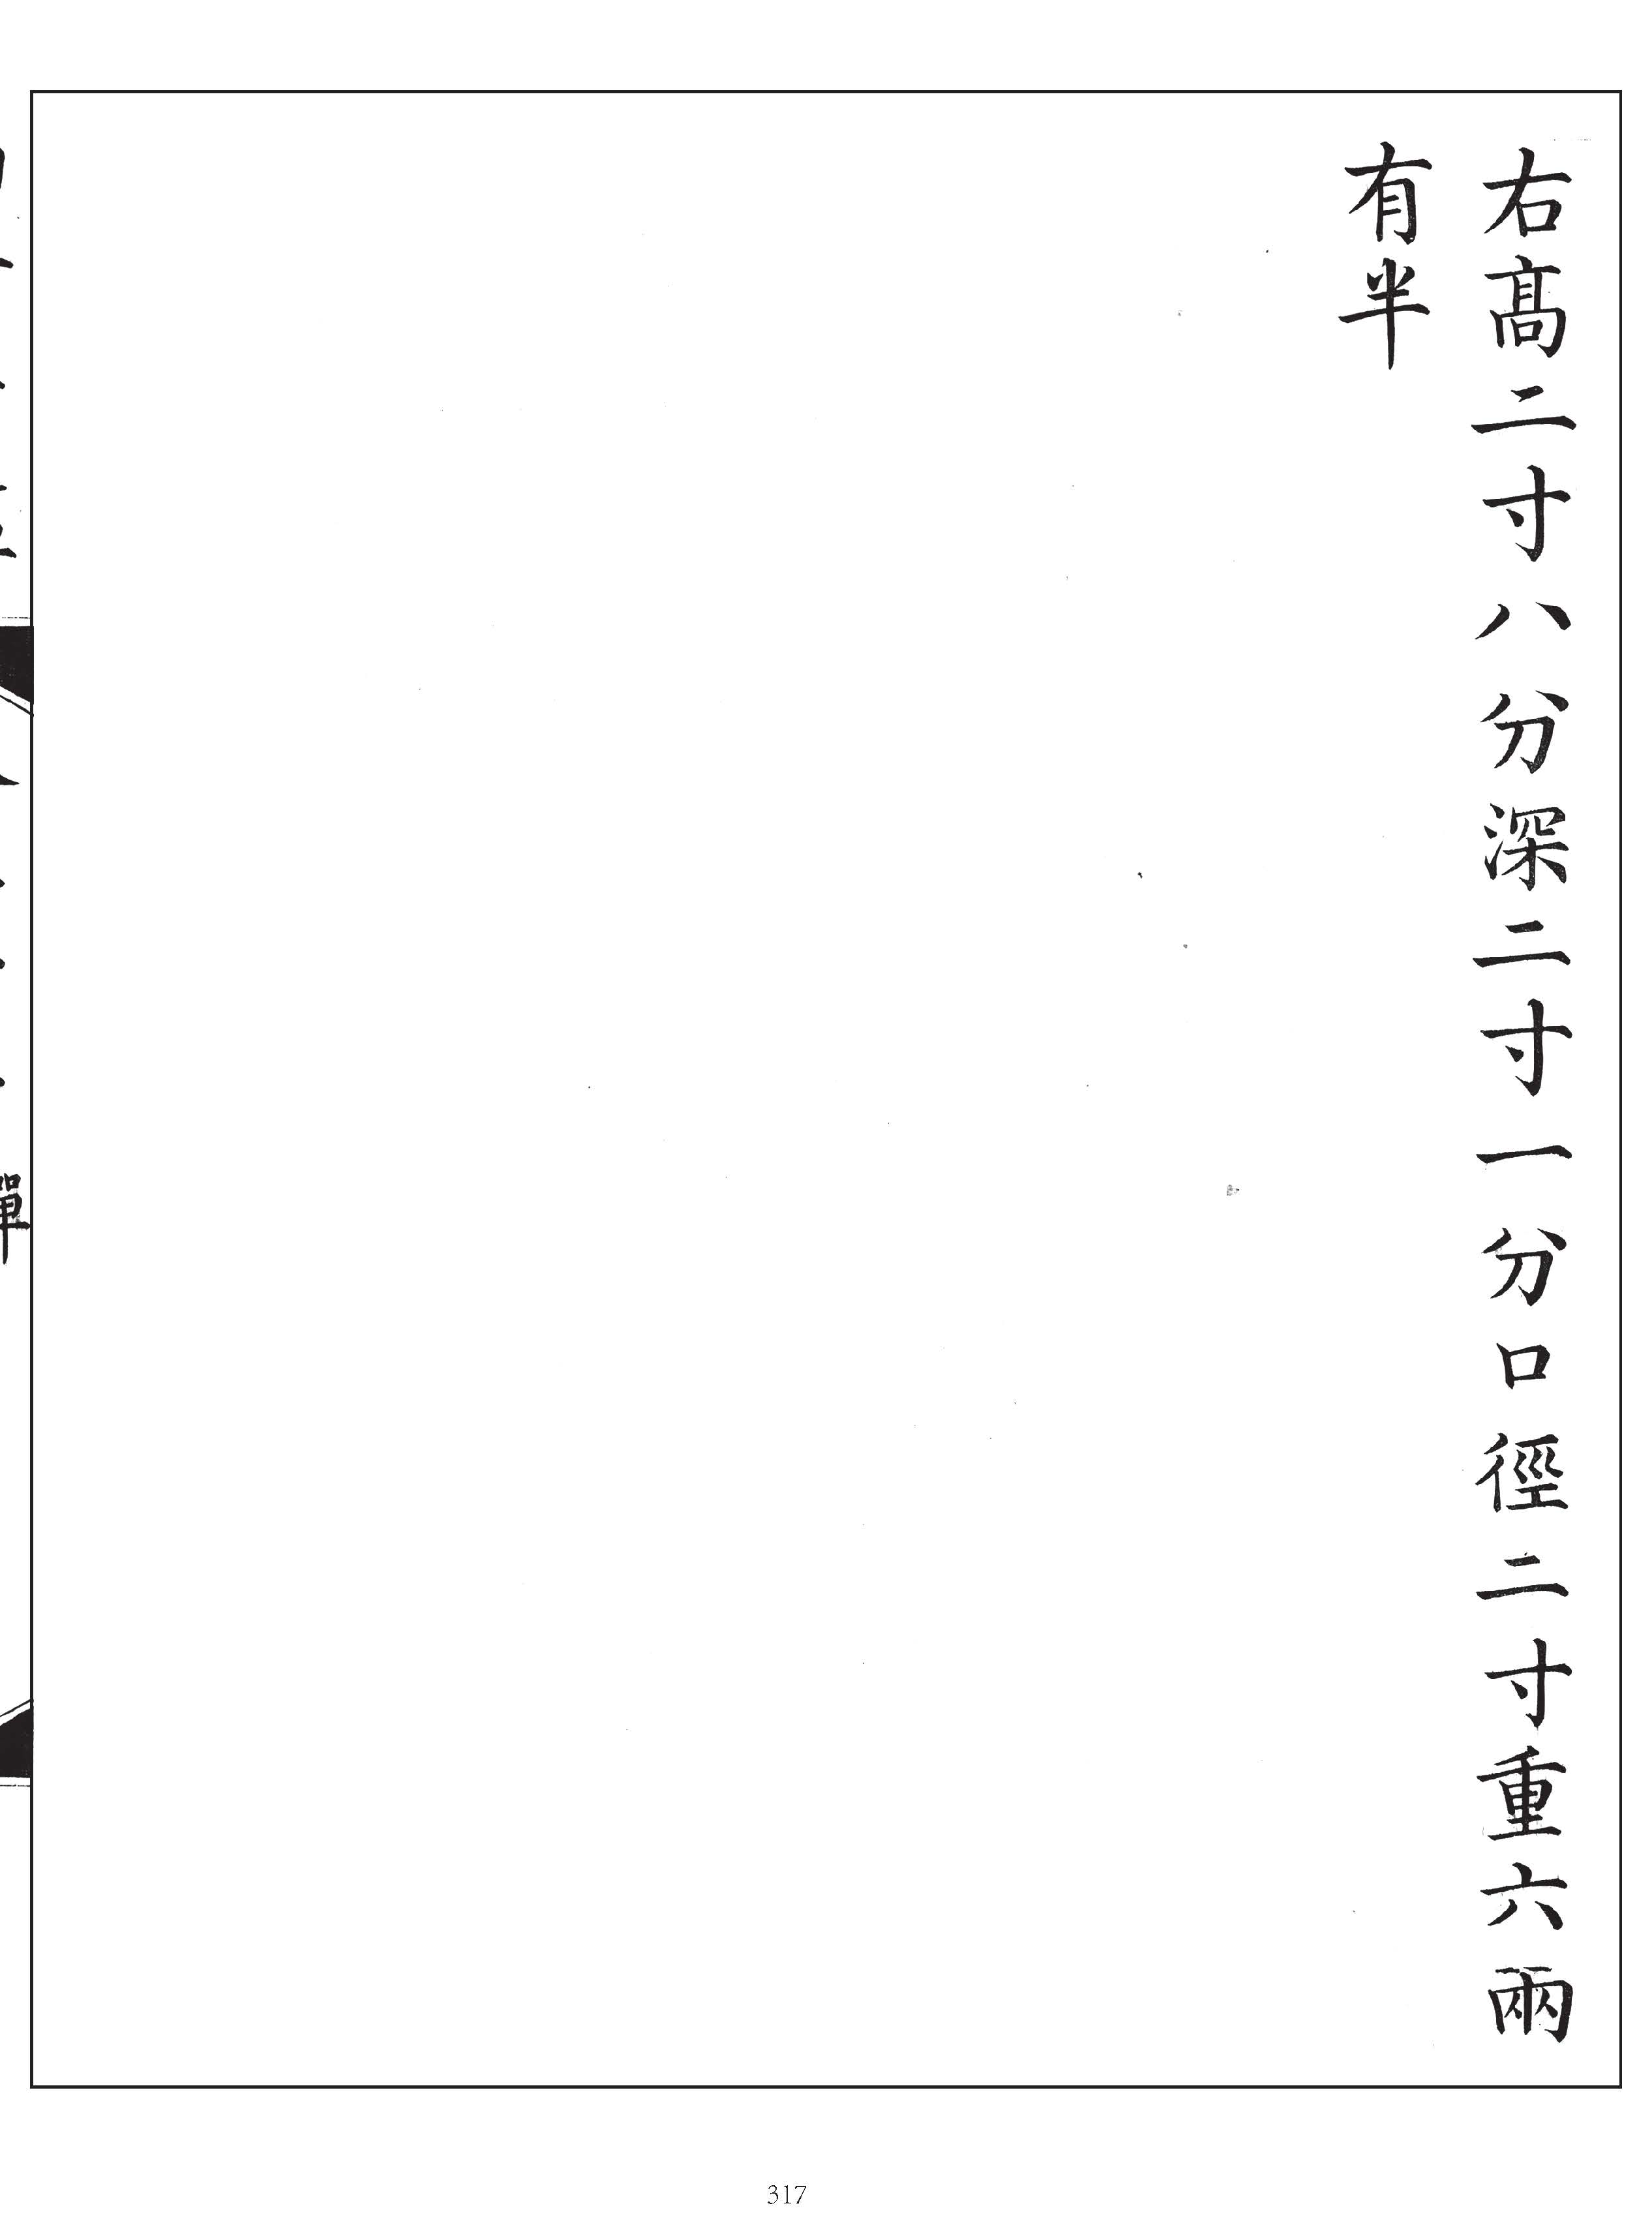 右髙二寸八分深二寸一分口徑二寸重六兩
有半
317